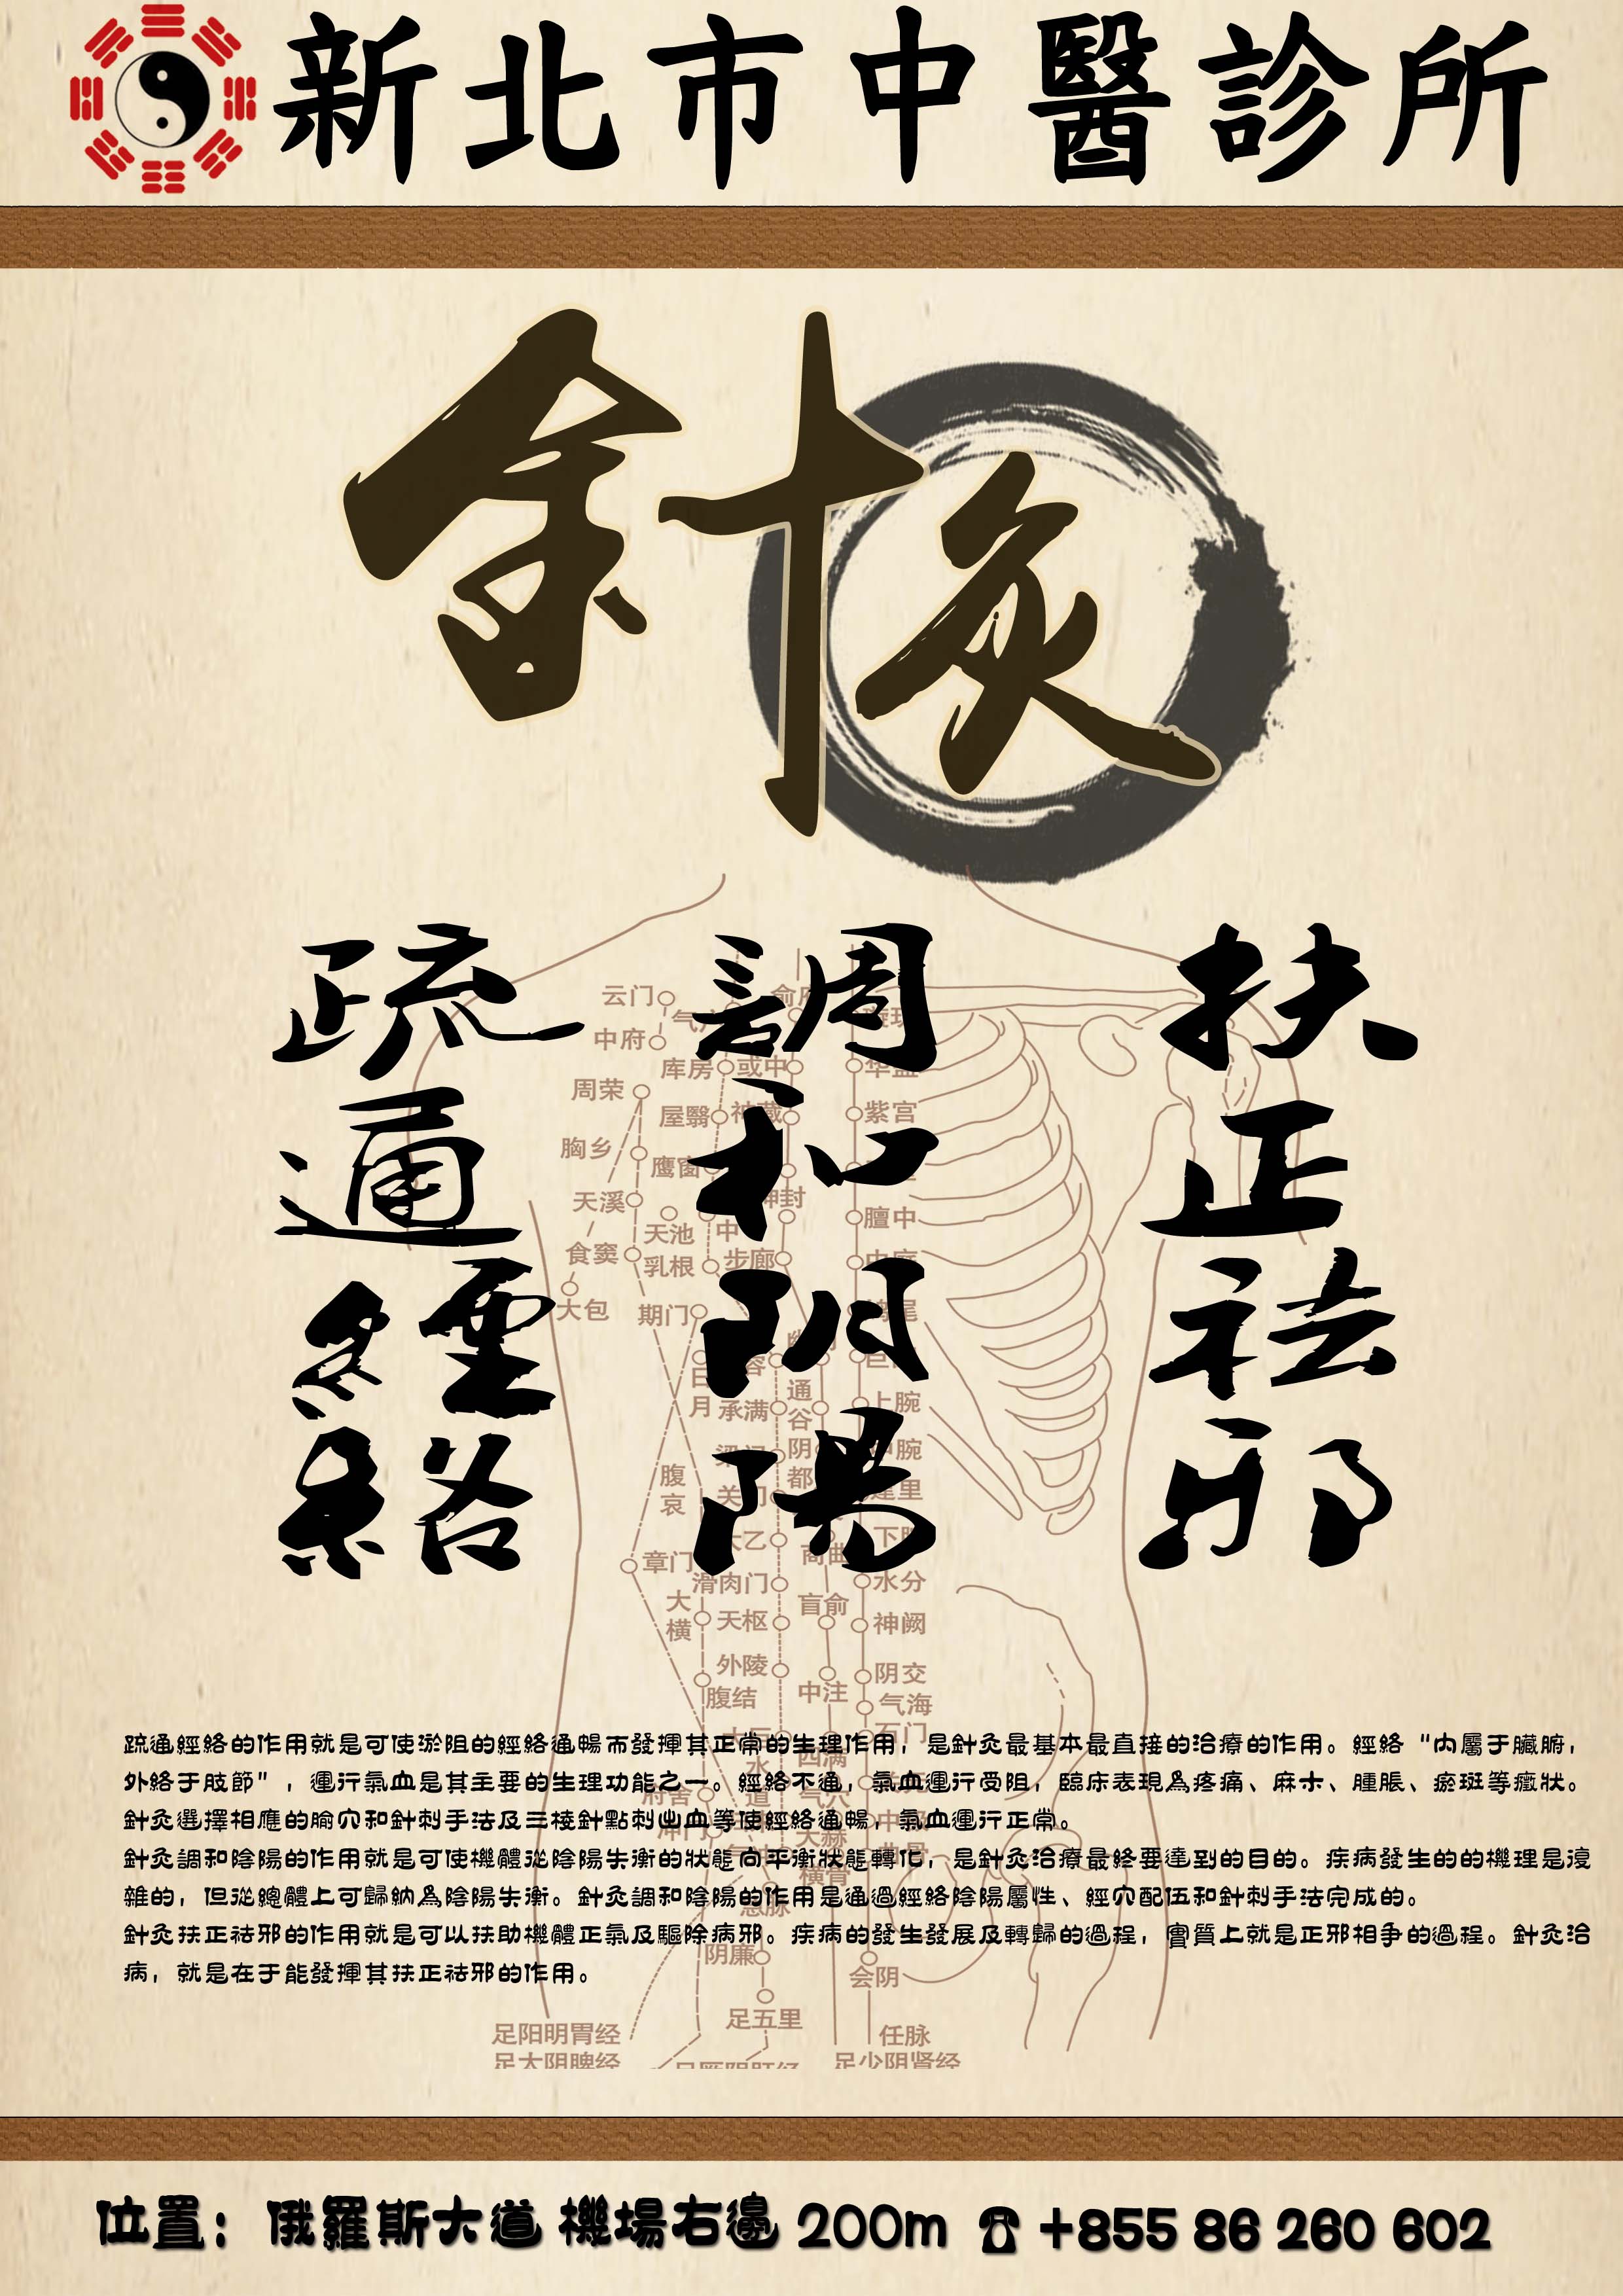 新北市中醫診所
針灸
疏通經絡
調和陰陽
扶正祛邪
云门
中府
库房
或中
华盖
周荣
屋翳
神藏
紫宫
胸乡
鹰窗
天溪
神封
膻中
天池
食窦
乳根
步廊
中庭
大包
期门
日月
承满
通谷
上腕
阴都
腹哀
章门
滑肉门
水分
大横
天枢
肓俞
神阙
外陵
阴交
腹结
中注
气海
石门
疏通經絡的作用就是可使淤阻的經絡通暢而發揮其正常的生理作用，是針灸最基本最直接的治療的作用。經絡“內屬于臟腑，
外絡于肢節”，運行氣血是其主要的生理功能之一。經絡不通，氣血運行受阻，臨床表現為疼痛、麻木、腫脹、瘀斑等癥狀。
針灸選擇相應的腧穴和針刺手法及三棱針點刺出血等使經絡通暢，氣血運行正常。
針灸調和陰陽的作用就是可使機體從陰陽失衡的狀態向平衡狀態轉化，是針灸治療最終要達到的目的。疾病發生的的機理是復
雜的，但從總體上可歸納為陰陽失衡。針灸調和陰陽的作用是通過經絡陰陽屬性、經穴配伍和針刺手法完成的。
針灸扶正祛邪的作用就是可以扶助機體正氣及驅除病邪。疾病的發生發展及轉歸的過程，實質上就是正邪相爭的過程。針灸治
病，就是在于能發揮其扶正祛邪的作用。
横骨
急脉
阴廉
会阴
足五里
足阳明胃经
任脉
足太阴脾经
足厥阴肝经
足少阴肾经
位置：俄羅斯大道 機場右邊 200m ☎ +855 86 260 602